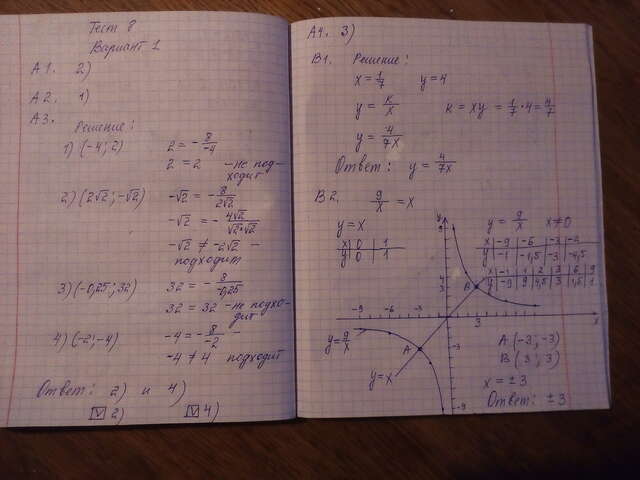 Тест 8
Вариант 1
А1. 2)
А2. 1)
А3.
Решение:
1) (-4; 2) 2 = -8/-4
2 = 2 - не под-
ходит
2) (2√2; -√2) -√2 = -8/2√2
-√2 = -4√2/√2·√2
-√2 ≠ -2√2 -
подходит
3) (-0,25; 32) 32 = -8/-0,25
32 = 32 - не подхо-
дит
4) (-2; -4) -4 = -8/-2 -
-4 ≠ 4 подходит
Ответ: 2) и 4)
V 2) V 4)
А4. 3)
В1. Решение:
x = 1/7 y = 4
y = к/x к = xy = 1/7 · 4 = 4/7
y = 4/7x
Ответ: y = 4/7x
В2. 9/x = x
y = x y = 9/x x ≠ 0
x 0 1 x -9 -6 -3 -2
y 0 1 y -1 -1,5 -3 -4,5
x -1 1 2 3 6 9
y -9 9 4,5 3 1,5 1
y
9
4
3
В
-9 -6 -3 3 x
-3
y = 9/x
А
y = x
-9
А (-3; -3)
В (3; 3)
x = ±3
Ответ: ±3